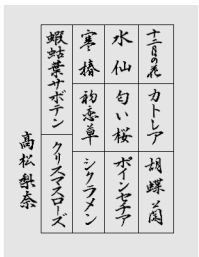 十二月の花 カトレア 胡蝶蘭
水仙 匂い桜 ポインセチア
寒椿 初恋草 シクラメン
蝦蛄葉サボテン クリスマスローズ
高松梨奈